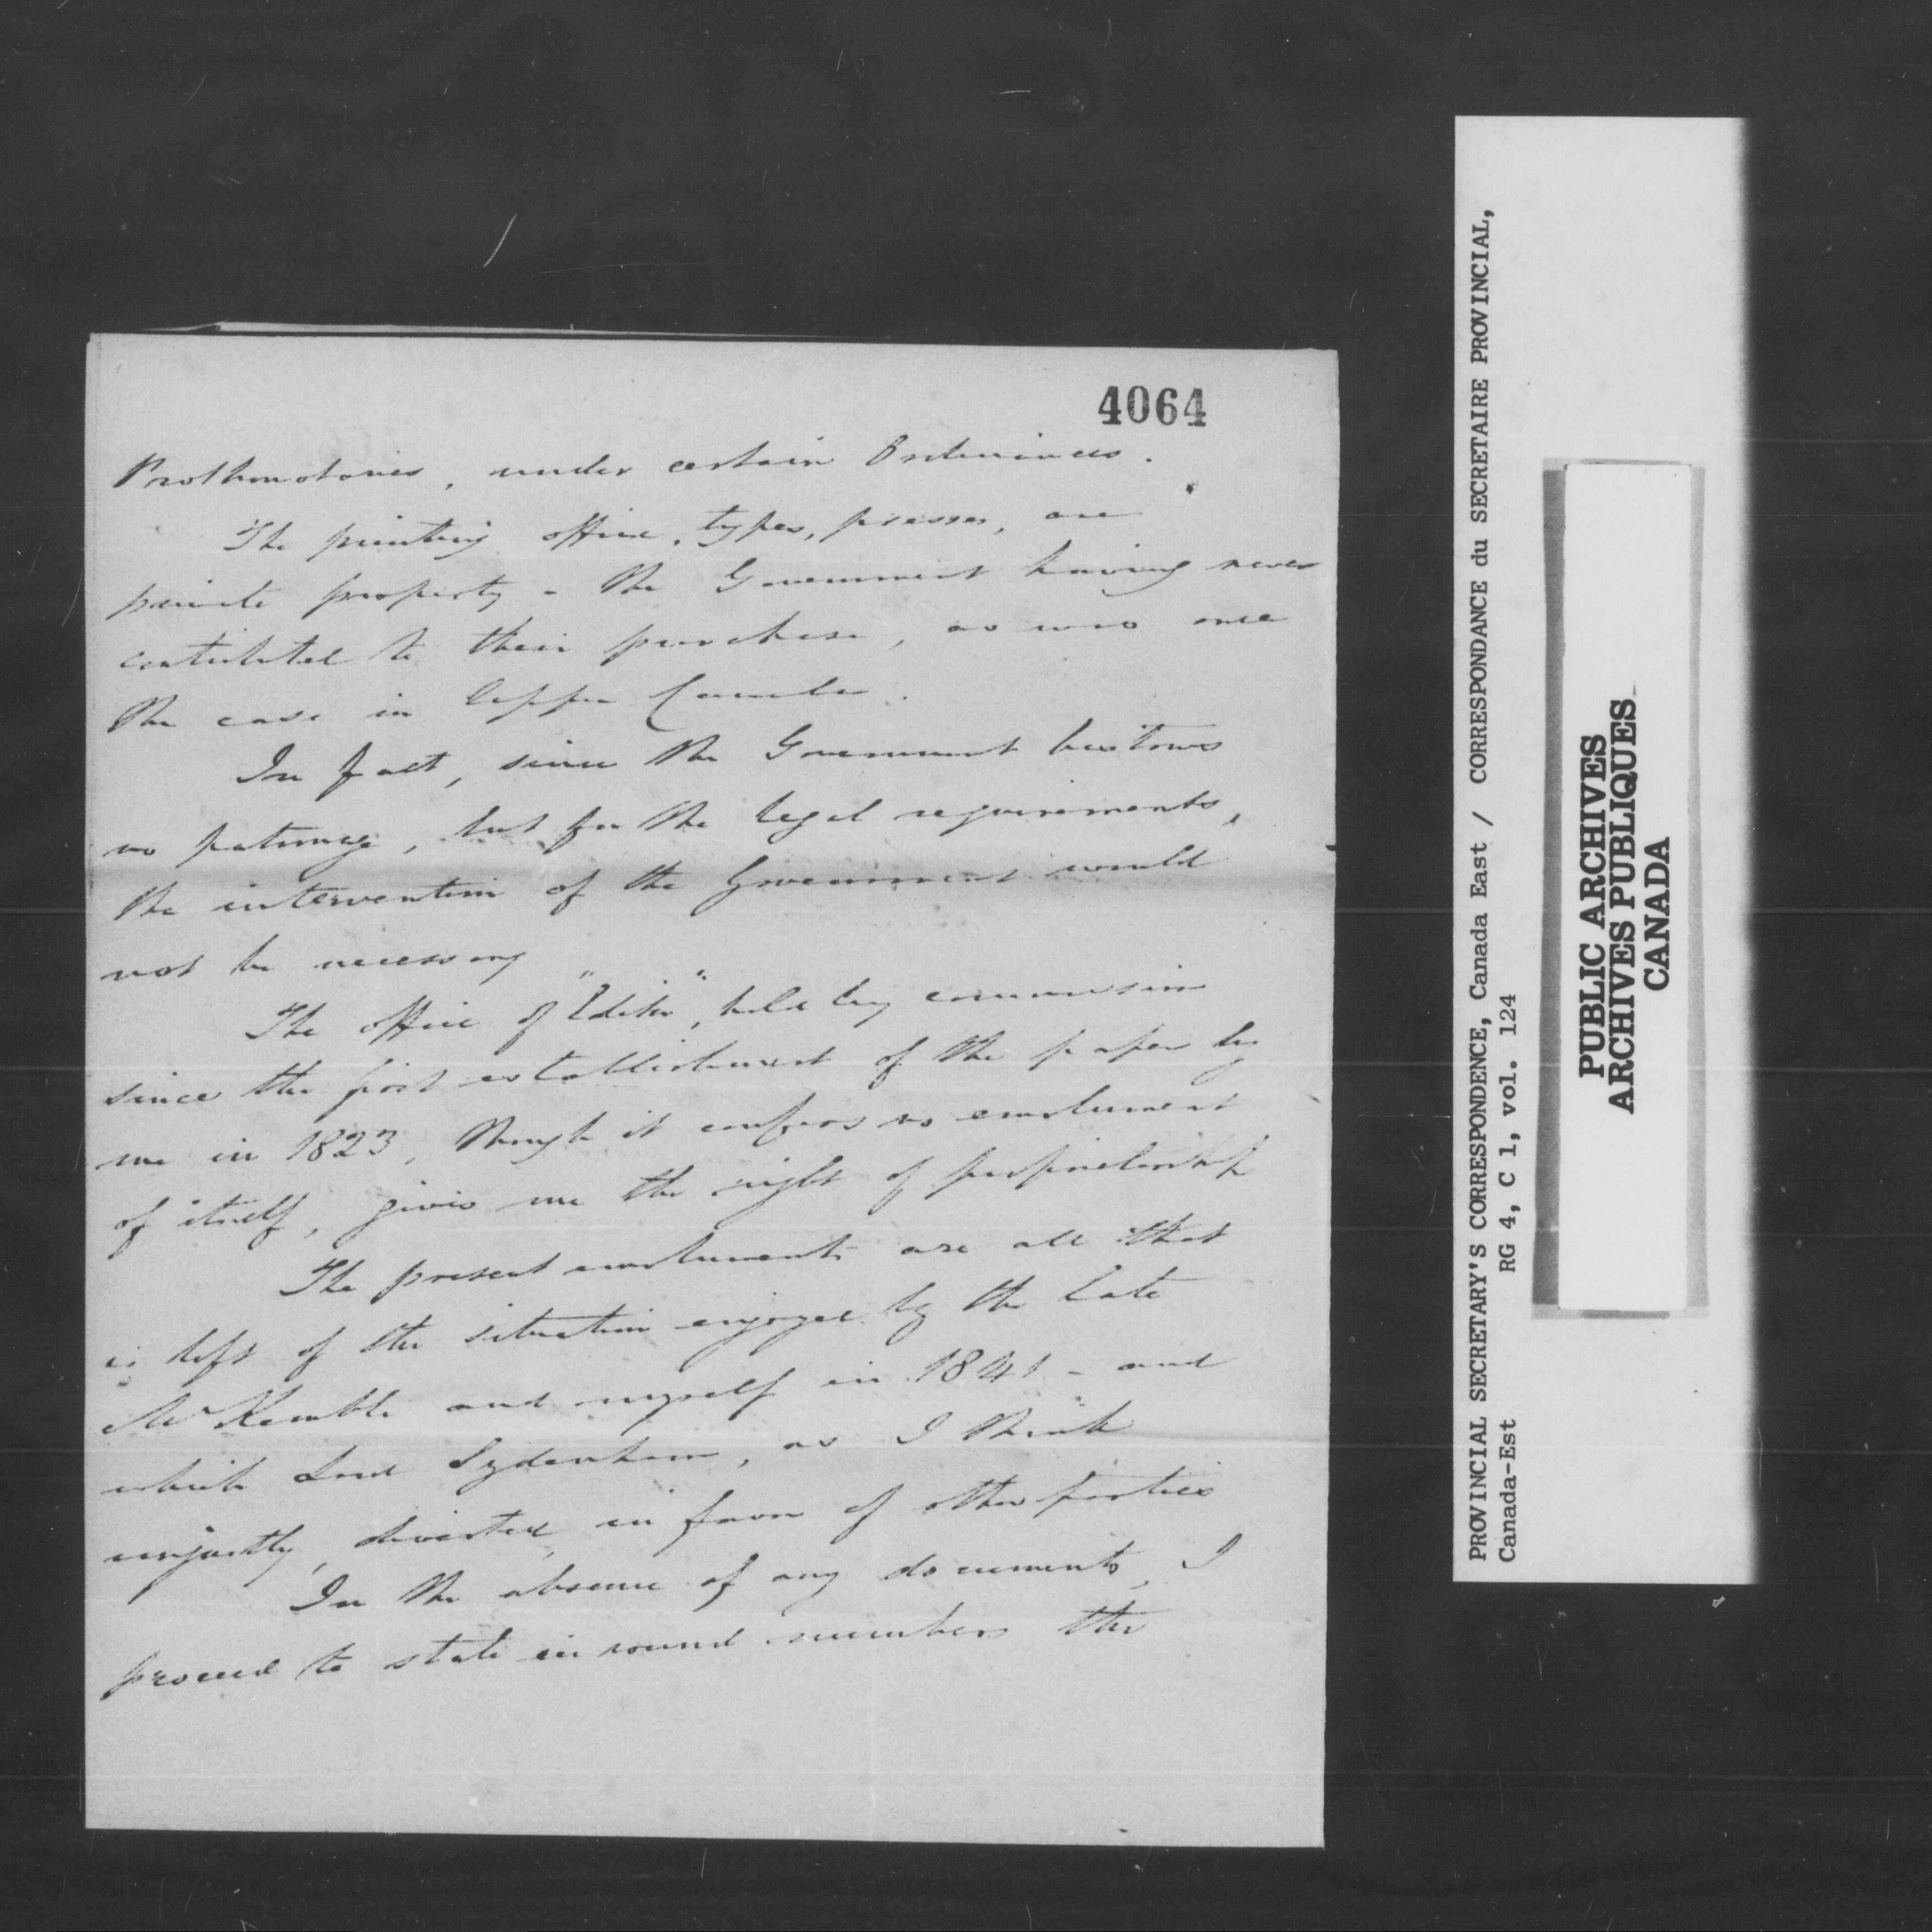 4064
Prothonotaries, under certain Ordinances.
The printing office, types, presses, are
private property - the Government having never
contributed to their purchase, as was once
the case in Upper Canada.
In fact, since the Government bestows
no patronage, but for the legal requirements,
the intervention of the Government would
not be necessary
The office of "Editor", held by commission
since the first establishment of the paper by
me in 1823, though it confers no emolument
of itself, gives me the right of proprietorship
The present emoluments are all that
is left of the situation enjoyed by the late
Mr Kemble and myself in 1841 - and
which Lord Sydenham, as I think
unjustly, diverted, in favor of other parties
In the absence of any documents, I
proceed to state in round numbers the
PROVINCIAL SECRETARY'S CORRESPONDENCE, Canada East / CORRESPONDANCE du SECRETAIRE PROVINCIAL,
Canada-Est RG 4, C 1, vol. 124
PUBLIC ARCHIVES
ARCHIVES PUBLIQUES
CANADA